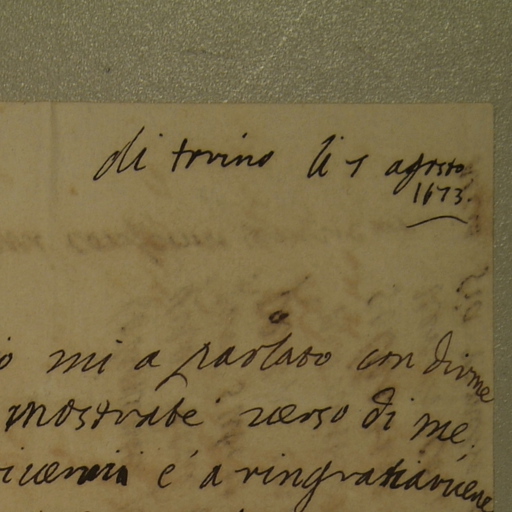 di torino li 1 agosto
1673.
io mi a parlato con dirme
mostrate verso di me,
é a ringratiaruene